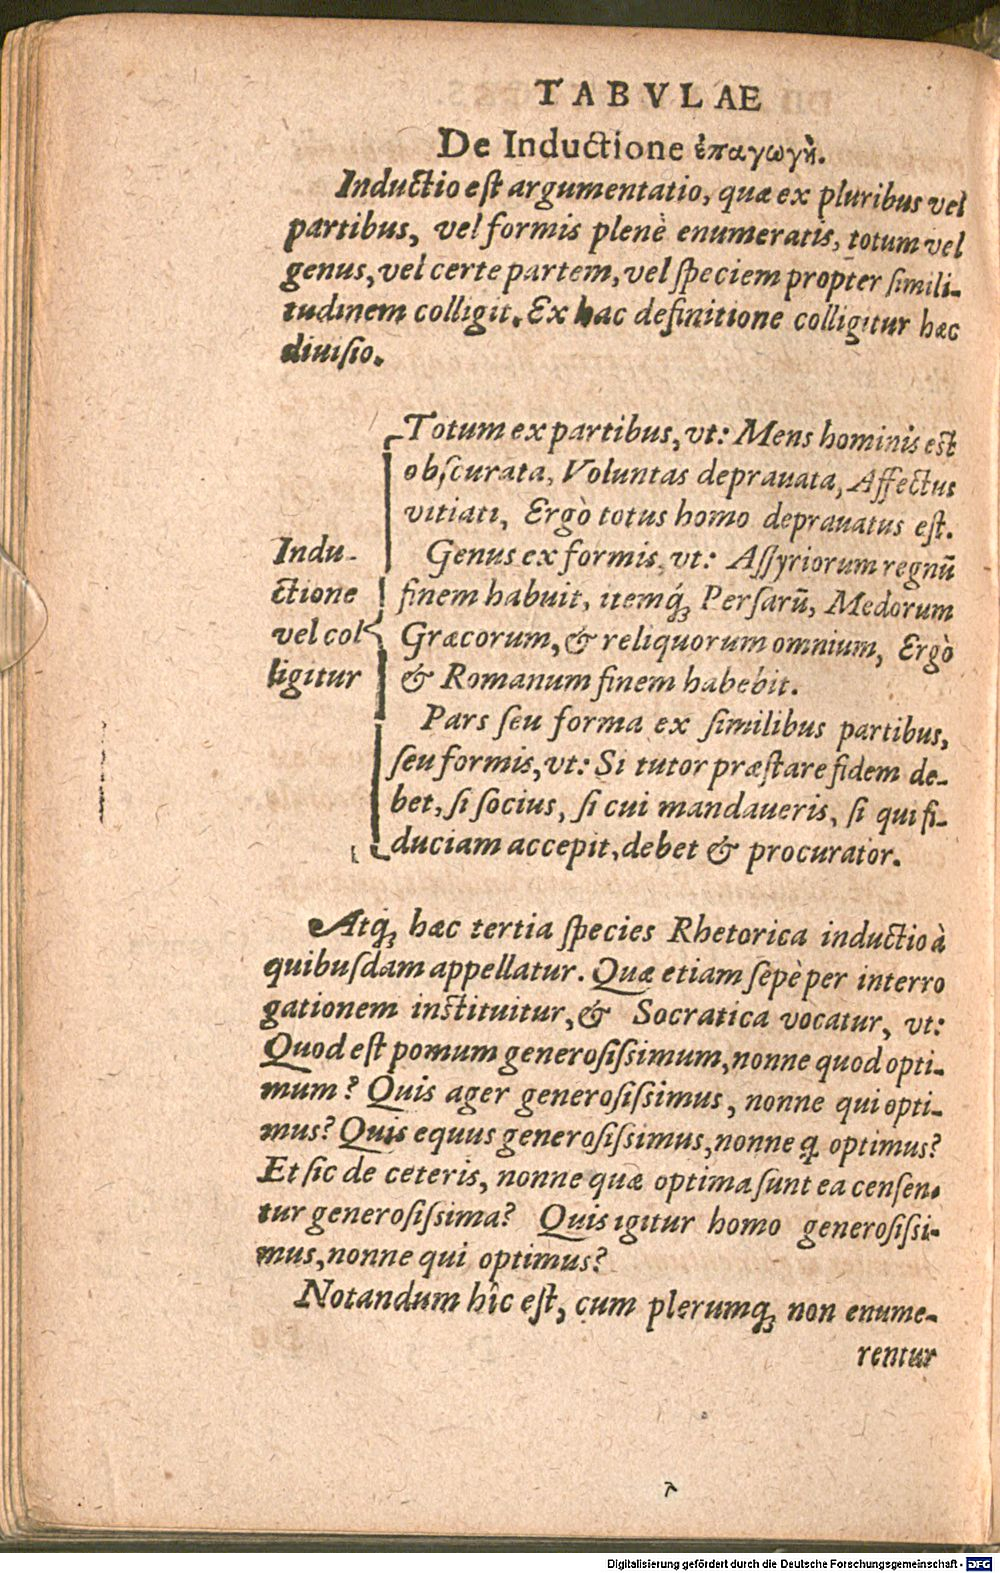 TABVLAE
De Inductione ἐπαγωγὴ.
Inductio eſt argumentatio, quæ ex pluribus vel
partibus, vel formis plenè enumeratis, totum vel
genus, vel certe partem, vel ſpeciem propter ſimili-
tudinem colligit. Ex hac definitione colligitur hæc
diuiſio.
Indu-
ctione
vel col
ligitur
Totum ex partibus, vt: Mens hominis est
obſcurata, Voluntas deprauata, Affectus
vitiati, Ergò totus homo deprauatus eſt.
Genus ex formis, vt: Aſſyriorum regnū
finem habuit, itemq́ꝫ Perſarū, Medorum
Græcorum, & reliquorum omnium, Ergò
& Romanum finem habebit.
Pars ſeu forma ex ſimilibus partibus,
ſeu formis, vt: Si tutor præſtare fidem de-
bet, ſi ſocius, ſi cui mandaueris, ſi qui fi-
duciam accepit, debet & procurator.
Atq́ꝫ hæc tertia ſpecies Rhetorica inductio à
quibuſdam appellatur. Quæ etiam ſepè per interro
gationem instituitur, & Socratica vocatur, vt:
Quod eſt pomum generoſiſsimum, nonne quod opti-
mum? Quis ager generoſiſsimus, nonne qui opti-
mus? Quis equus generoſiſsimus, nonne ꝗ optimus?
Et ſic de ceteris, nonne quæ optima ſunt ea cenſen-
tur generoſiſsima? Quis igitur homo generoſiſsi-
mus, nonne qui optimus?
Notandum hîc eſt, cum plerumqꝫ non enume-
rentur
Digitalisierung gefördert durch die Deutsche Forschungsgemeinschaft - DFG